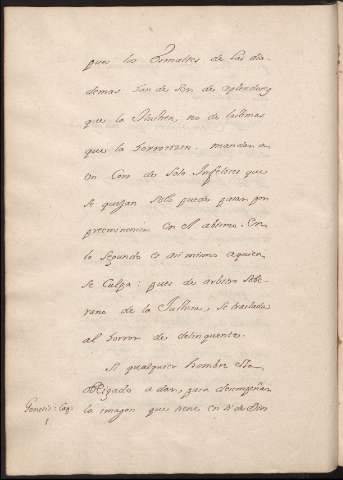 pues los Esmaltes de las dia-
demas han de ser de esplendores
que la ilustren, no de lastimas
que la horroricen. mandar a
un Coro de solo Infelices que
se quejan solo puede pasar por
preeminencia en el abismo. En
lo segundo es asi mismo a quien
se Culpa: pues de arbitro Sobe-
rano de la Justicia, se traslada
al horror de delinquentes.
A qualquier hombre esta
obligado a dar, para desempeñar
la imagen que tiene en si de Dios
Genesis: Cap:
1